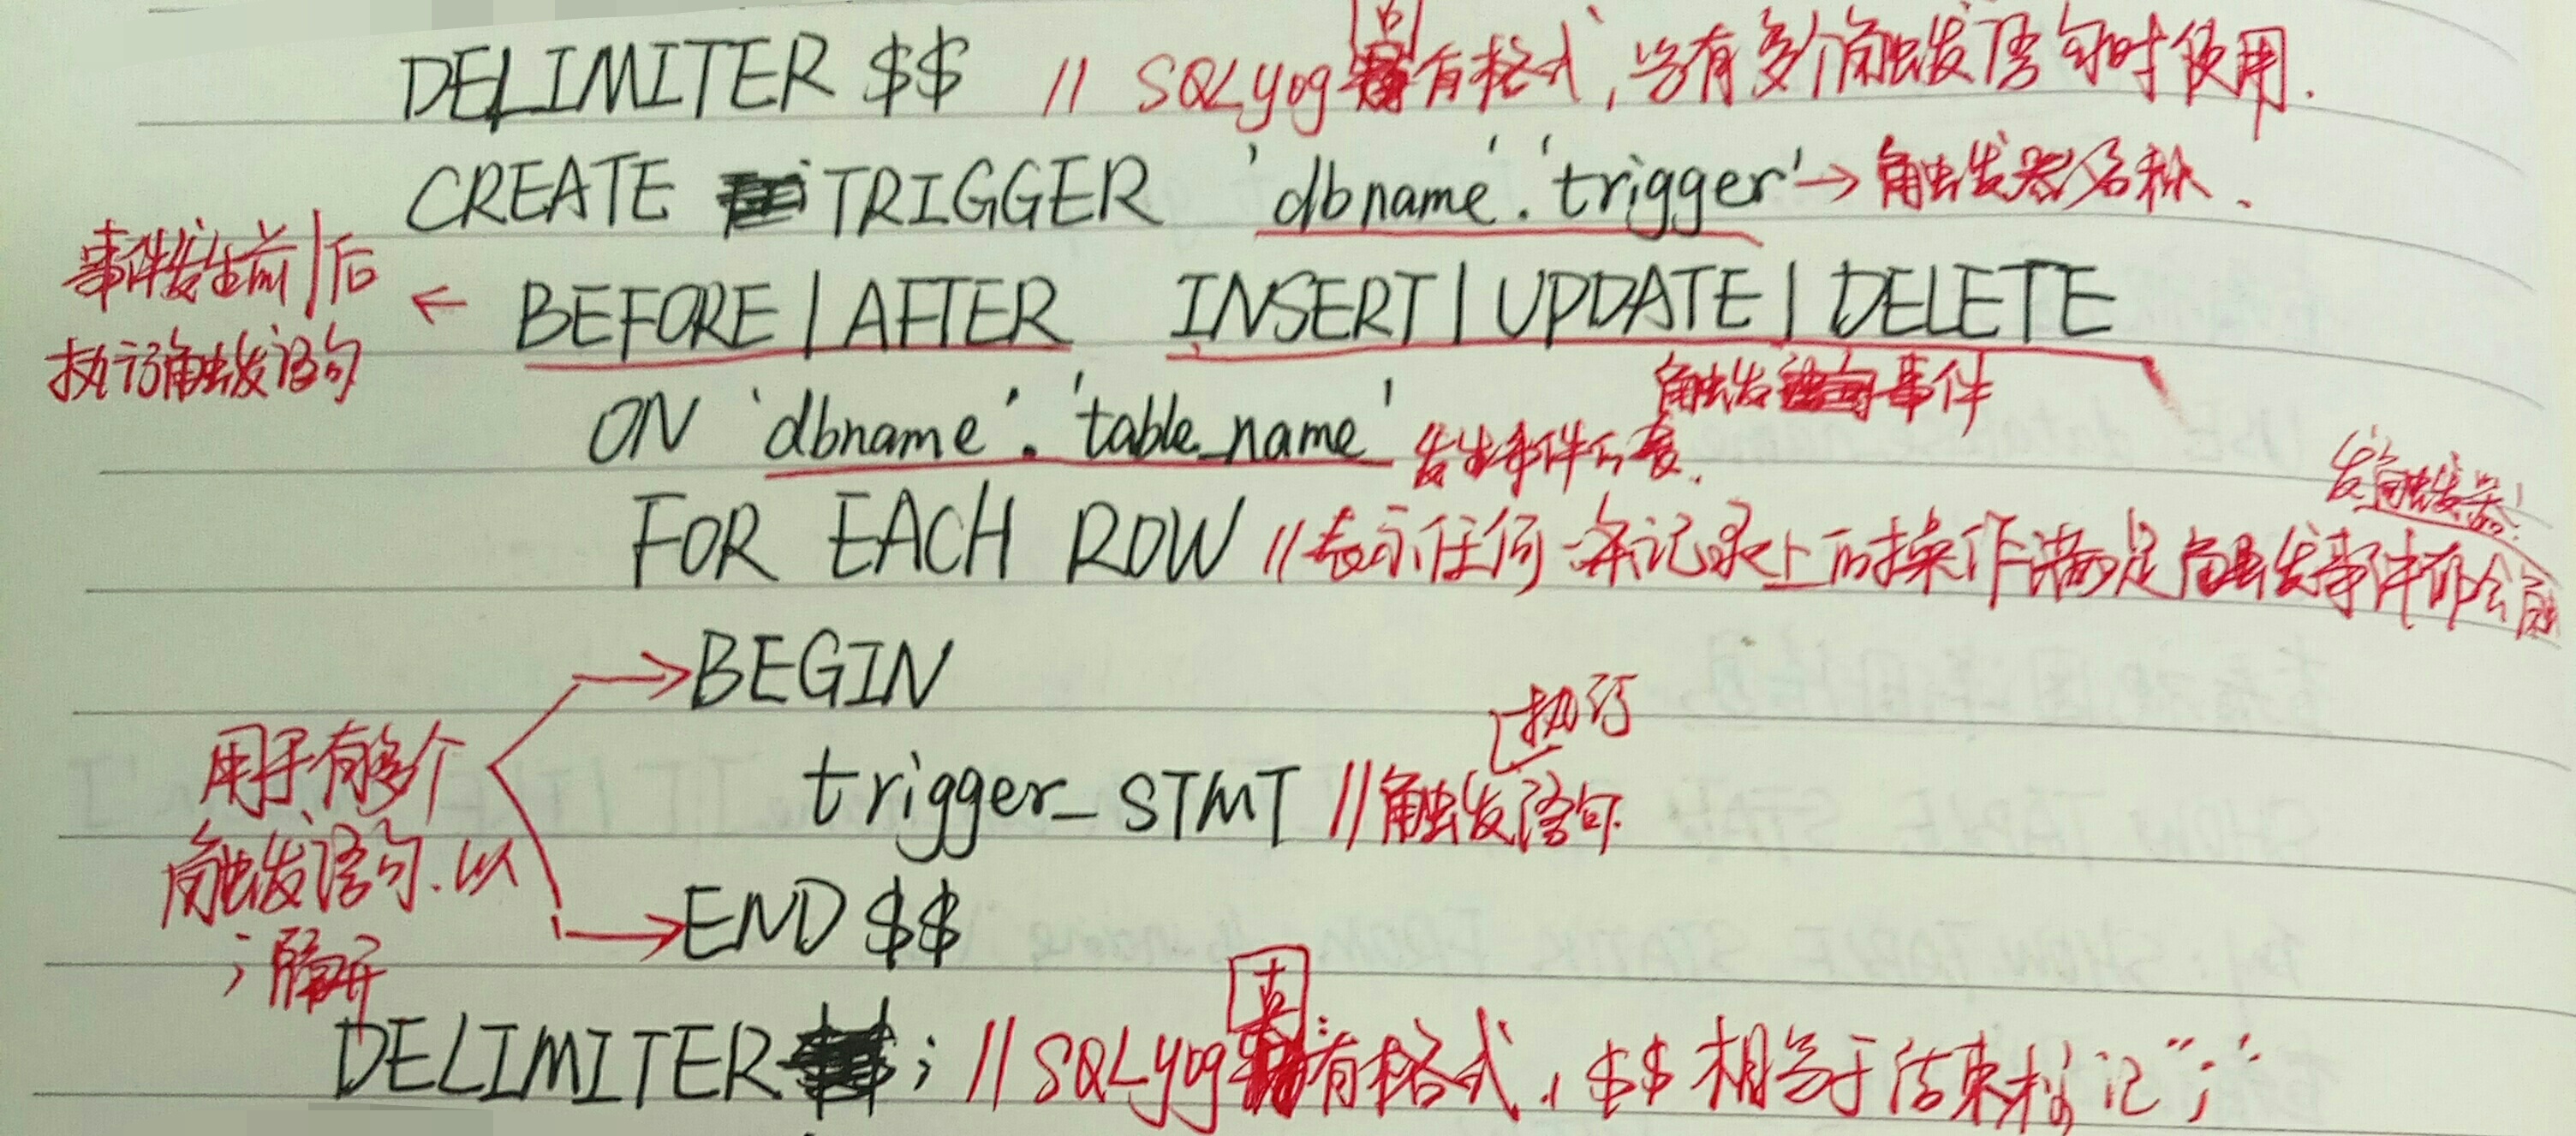 DELIMITER $$ // SQLyog 有格式,当有多个触发语句时使用.
CREATE TRIGGER 'dbname'.'trigger' → 触发器名称.
事件发生前|后
执行触发语句
← BEFORE | AFTER INSERT | UPDATE | DELETE
触发事件
ON 'dbname'.'table_name' 发生事件的表.
FOR EACH ROW //表示任何一条记录上的操作满足触发事件都会
发触发器!
→BEGIN
用于有多个
触发语句.以
;隔开
执行
trigger_STMT //触发语句.
→END $$
DELIMITER ; // SQLyog 有格式,$$相当于结束标记";"